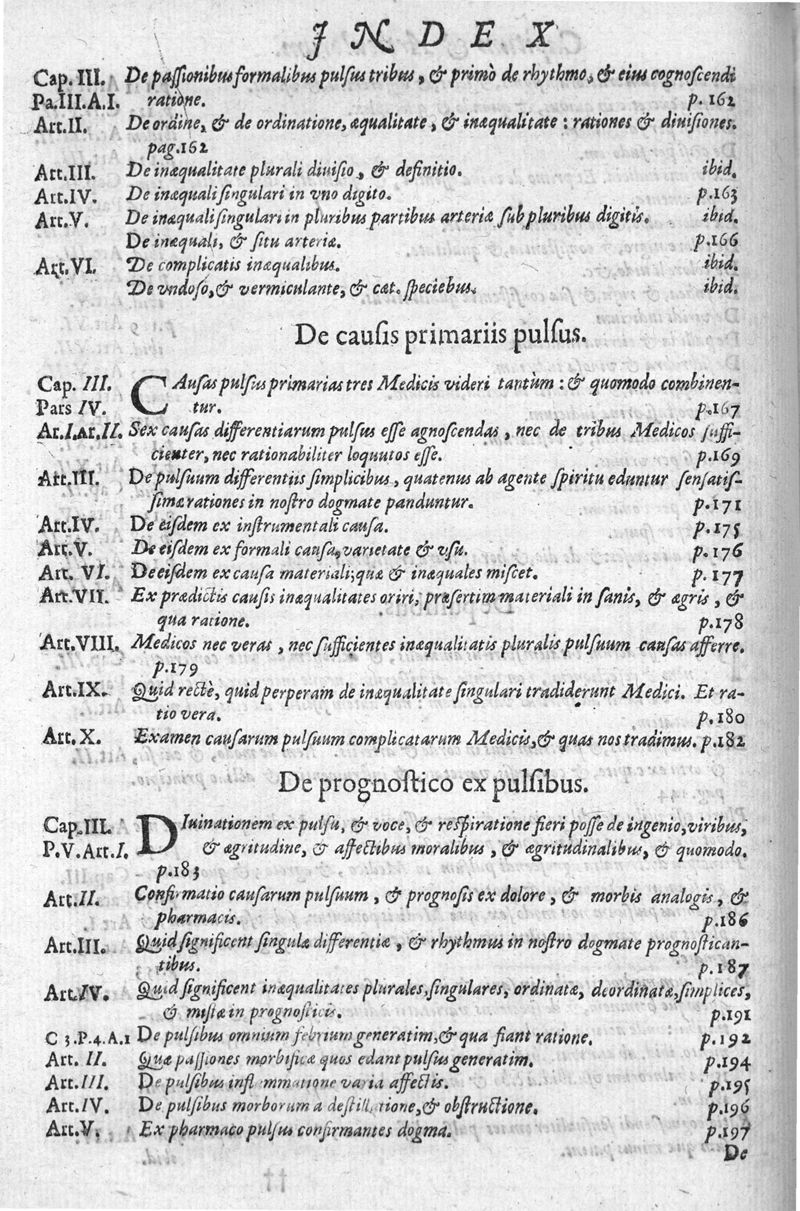 INDEX
Cap. III. De passionibus formalibus pulsus tribus, & primò de rhythmo, & eius cognoscendi
Pa.III.A.I. ratione. p.162
Art.II. De ordine, & de ordinatione, æqualitate, & inæqualitate: rationes & diuisiones.
pag.162
Art.III. De inæqualitate plurali diuisio, & definitio. ibid.
Art.IV. De inæquali singulari in vno digito. p.163
Art.V. De inæquali singulari in pluribus partibus arteriæ sub pluribus digitis. ibid.
De inæquali, & situ arteriæ. p.166
Art.VI. De complicatis inæqualibus. ibid.
De vndoso, & vermiculante, & cæt. speciebus. ibid.
De causis primariis pulsus.
Cap. III. CAusas pulsus primarias tres Medicis videri tantùm: & quomodo combinen-
Pars IV. tur. p.167
Ar.I.Ar.II. Sex causas differentiarum pulsus esse agnoscendas, nec de tribus Medicos suffi-
cienter, nec rationabiliter loquutos esse. p.169
Art.III. De pulsuum differentiis simplicibus, quatenus ab agente spiritu eduntur sensatis-
simæ rationes in nostro dogmate panduntur. p.171
Art.IV. De eisdem ex instrumentali causa. p.175
Art.V. De eisdem ex formali causa, varietate & vsu. p.176
Art. VI. De eisdem ex causa materiali; quæ & inæquales miscet. p.177
Art.VII. Ex prædictis causis inæqualitates oriri, præsertim materiali in sanis, & ægris, &
qua ratione. p.178
Art.VIII. Medicos nec veras, nec sufficientes inæqualitatis pluralis pulsuum causas afferre.
p.179
Art.IX. Quid rectè, quid perperam de inæqualitate singulari tradiderunt Medici. Et ra-
tio vera. p.180
Art. X. Examen causarum pulsuum complicatarum Medicis, & quas nos tradimus. p.182
De prognostico ex pulsibus.
Cap.III. DIuinationem ex pulsu, & voce, & respiratione fieri posse de ingenio, viribus,
P.V.Art.I. & ægritudine, & affectibus moralibus, & ægritudinalibus, & quomodo.
p.183
Art.II. Confirmatio causarum pulsuum, & prognosis ex dolore, & morbis analogis, &
pharmacis. p.186
Art.III. Quid significent singulæ differentiæ, & rhythmus in nostro dogmate prognostican-
tibus. p.187
Art.IV. Quid significent inæqualitates plurales, singulares, ordinatæ, deordinatæ, simplices,
& mistæ in prognosticis. p.191
C 3.P.4.A.1 De pulsibus omnium febrium generatim, & qua fiant ratione. p.192
Art. II. Quæ passiones morbificæ quos edant pulsus generatim. p.194
Art.III. De pulsibus infl mmatione varia affectis. p.195
Art.IV. De pulsibus morborum a destillatione, & obstructione. p.196
Art.V. Ex pharmaco pulsus confirmantes dogma. p.197
De